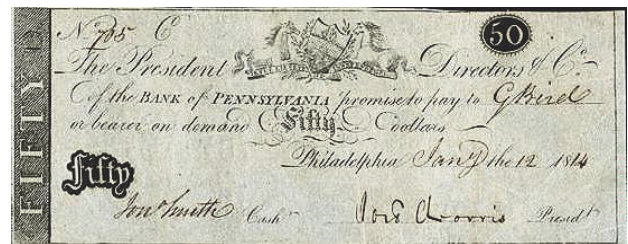 FIFTY
N. 705 C
50
The President Directors & Co.
of the BANK of PENNSYLVANIA promise to pay to G Bird
or bearer on demand Fifty dollars
Philadelphia Jany. the 12 1814
Fifty
Jon Smith Cashr. Jos Morris Presidt.